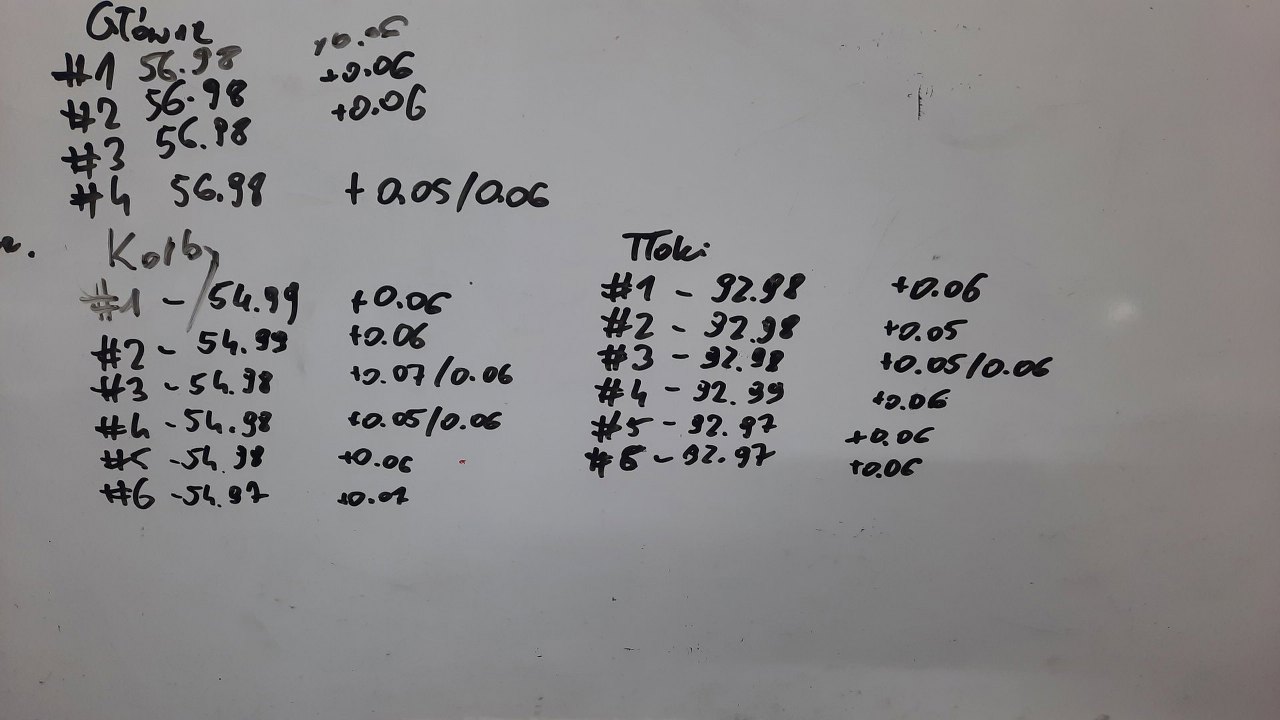 Główne
+0.06
#1 56.98 +0.06
#2 56.98 +0.06
#3 56.98
#4 56.98 + 0.05/0.06
Korby
#1 - 54.99 +0.06
#2 - 54.99 +0.06
#3 - 54.98 +0.07/0.06
#4 - 54.98 +0.05/0.06
#5 - 54.98 +0.06
#6 - 54.97 +0.07
Tłoki
#1 - 92.98 +0.06
#2 - 92.98 +0.05
#3 - 92.98 +0.05/0.06
#4 - 92.99 +0.06
#5 - 92.97 +0.06
#6 - 92.97 +0.06